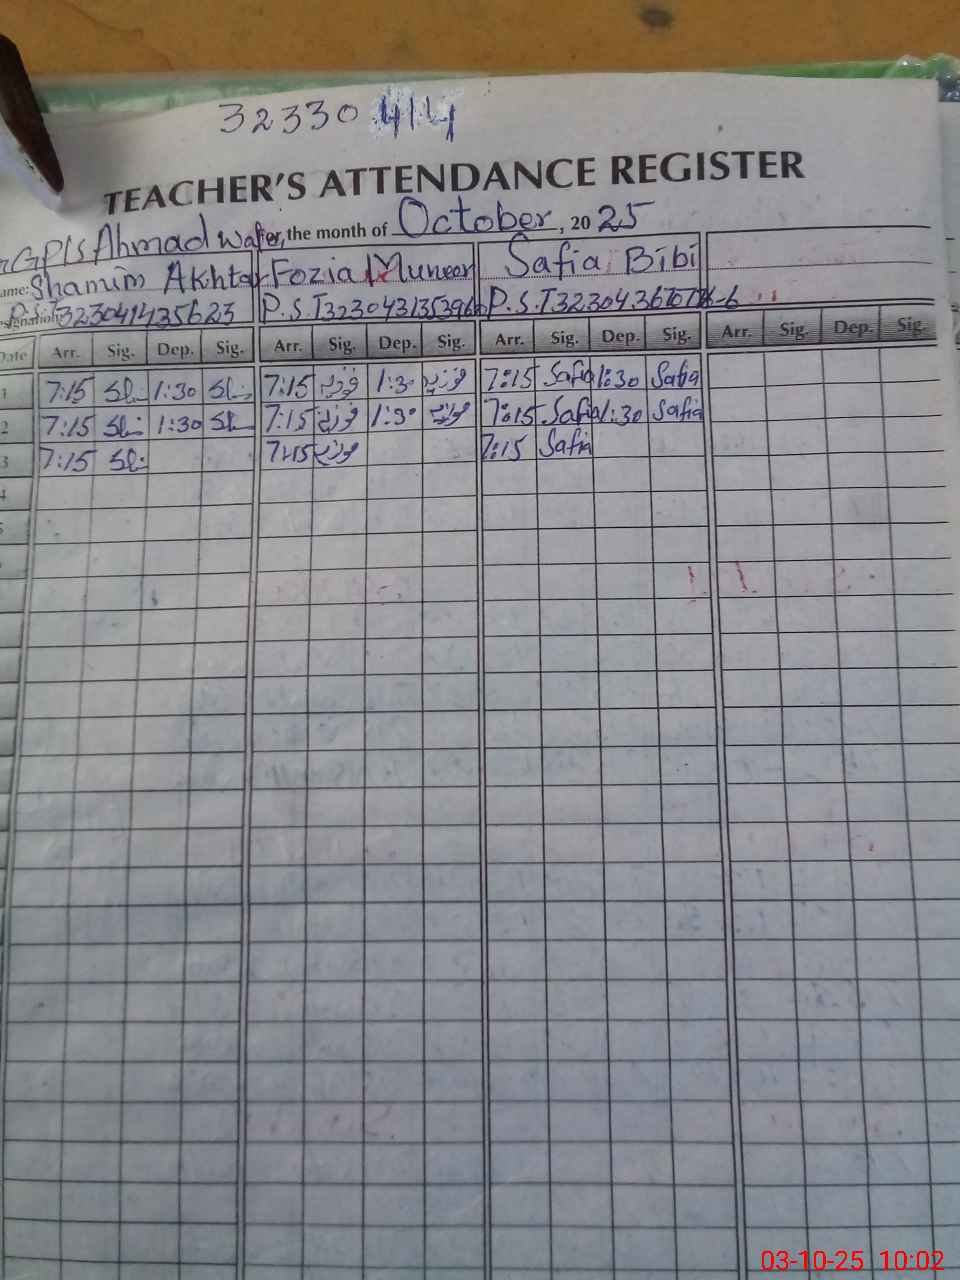 32330414
TEACHER'S ATTENDANCE REGISTER
GP/S Ahmad wafer, the month of October, 2025
ame: Shamim Akhtar Fozia Muneer Safia Bibi
signation P.S.T P.S.T P.S.T
Date Arr. Sig. Dep. Sig. Arr. Sig. Dep. Sig. Arr. Sig. Dep. Sig. Arr. Sig. Dep. Sig.
1 7:15 1:30 7:15 فوزیہ 1:30 فوزیہ 7:15 Safia 1:30 Safia
2 7:15 1:30 7:15 فوزیہ 1:30 فوزیہ 7:15 Safia 1:30 Safia
3 7:15 7:15 فوزیہ 7:15 Safia
4
5
03-10-25 10:02